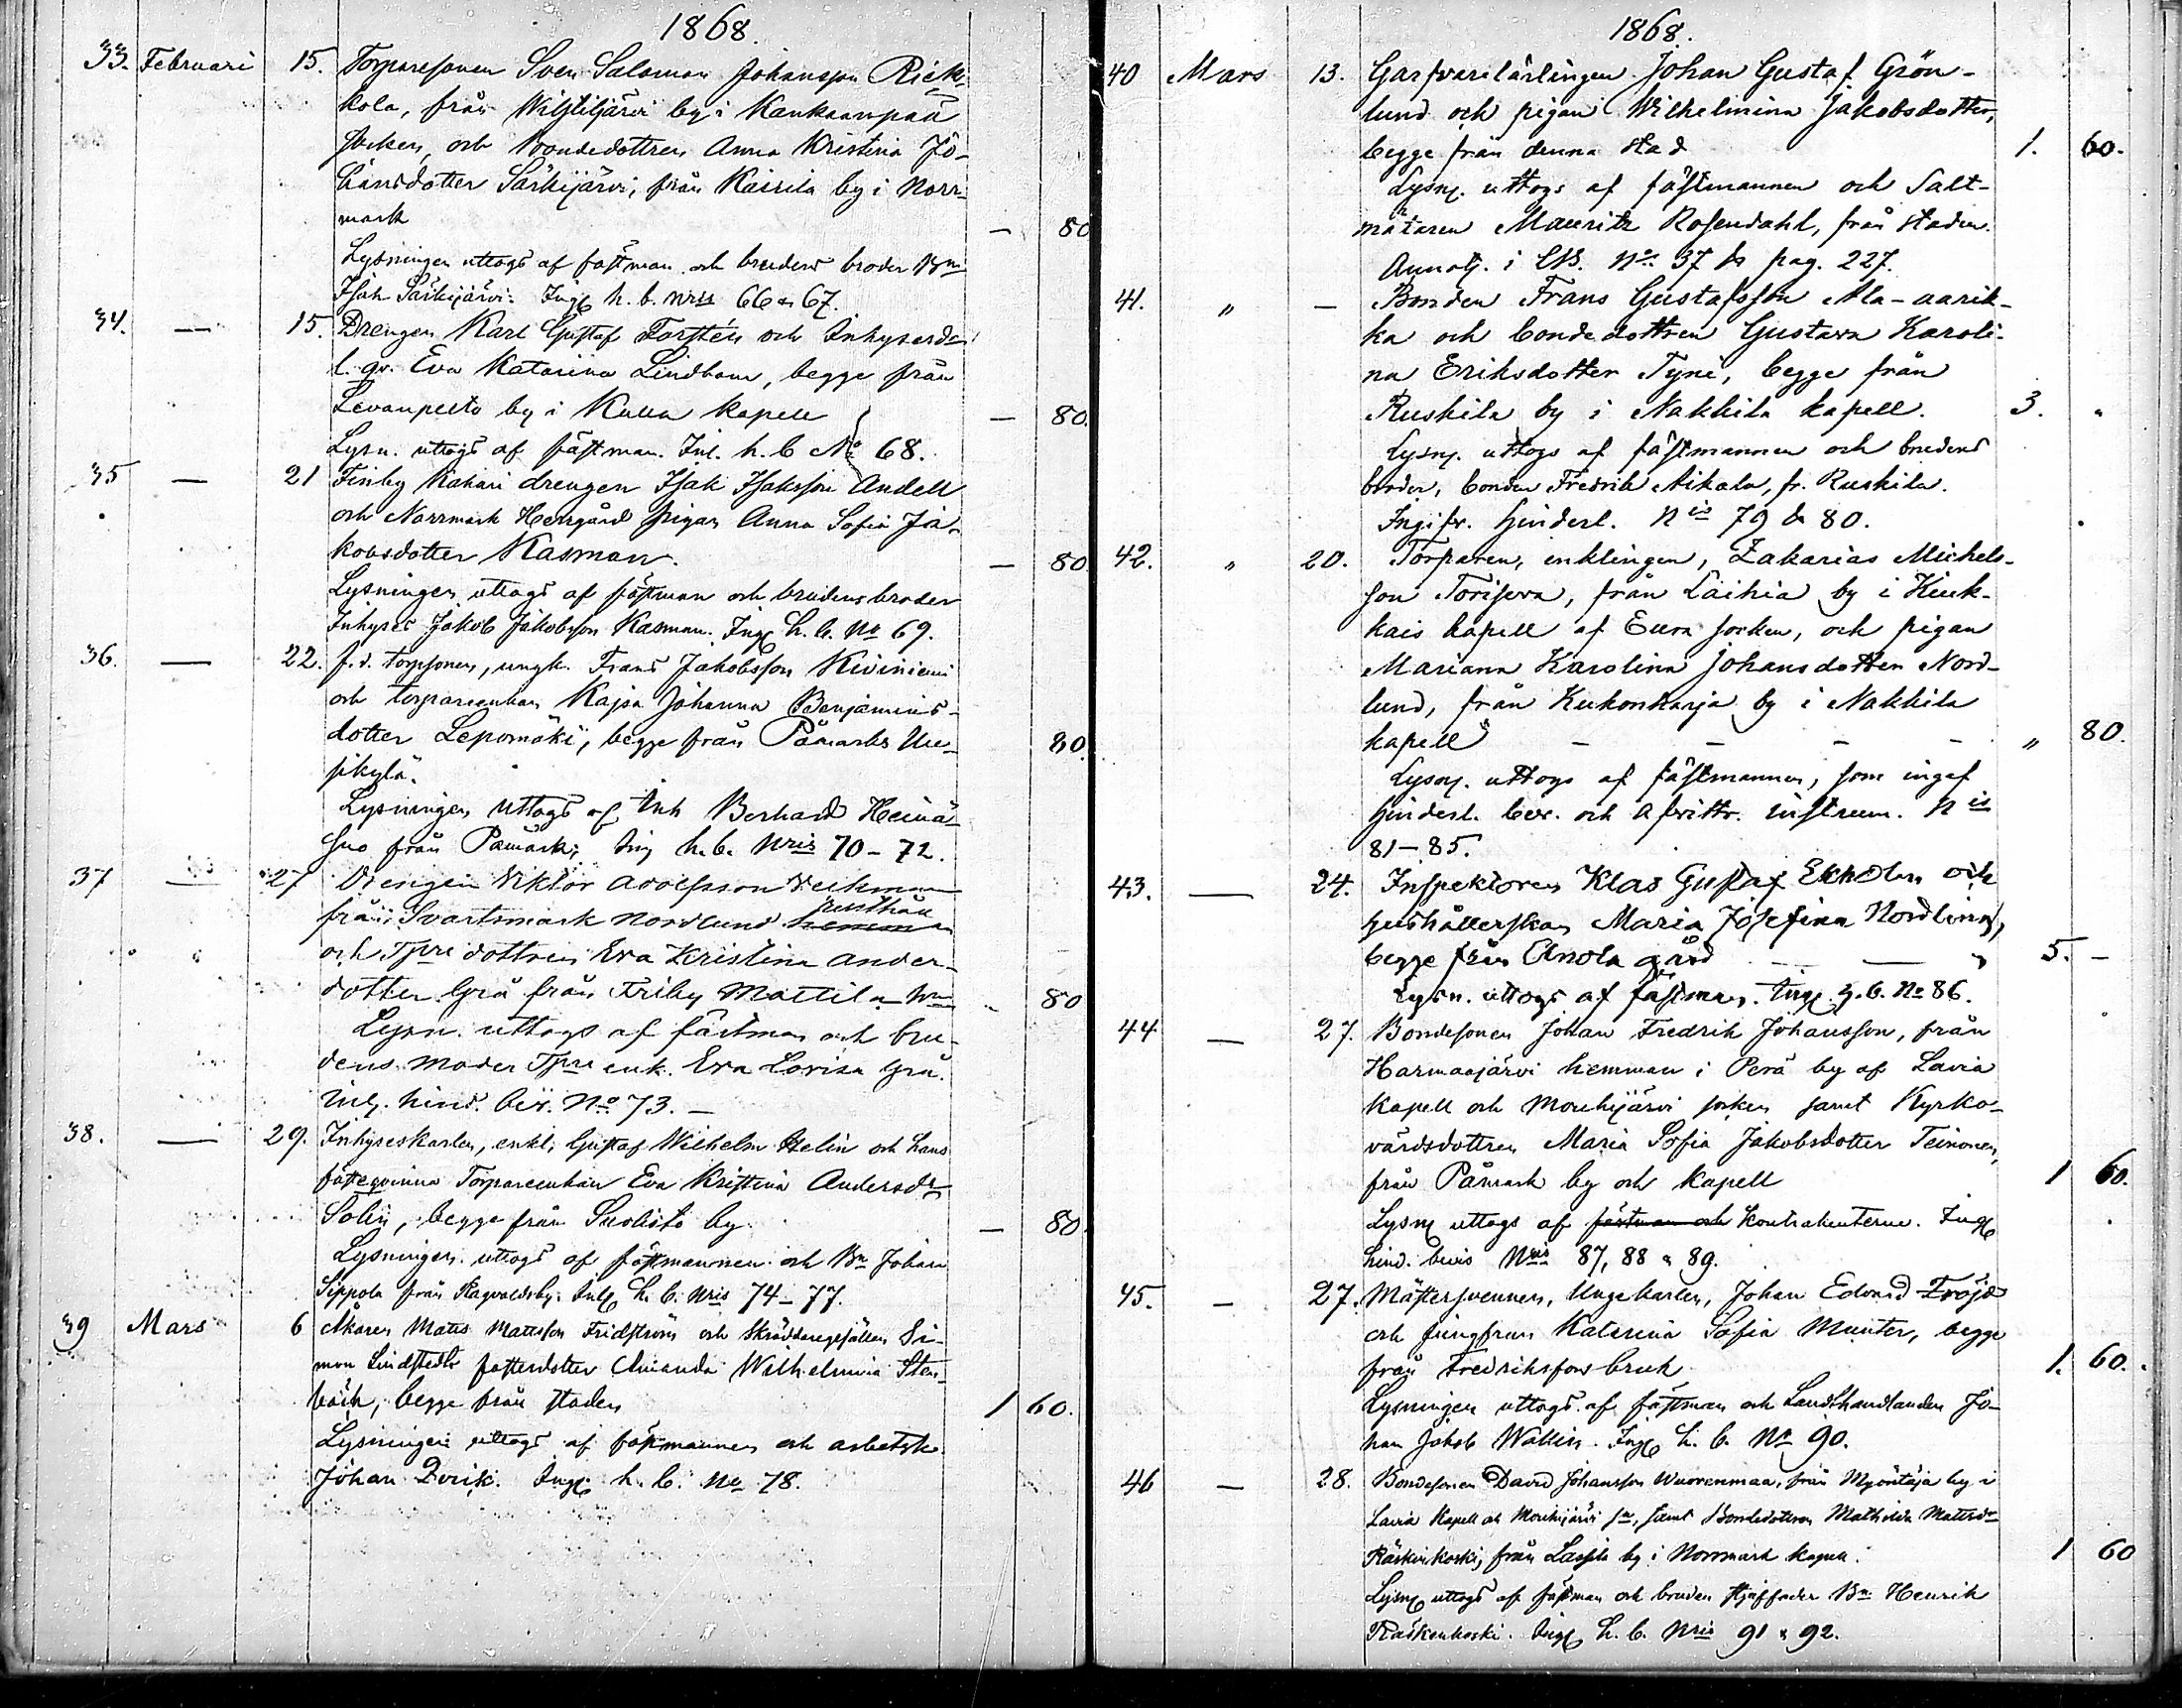 1868.
33. Februari 15. Torparesonen Sven Salomon Johansson Riek-
kola, från by i Kankaanpää
socken, och bondedottren Anna Kristina Jo-
hansdotter Särkijärvi, från Kairila by i Norr-
mark — 80
Lysningen uttogs af fästman och brudens broder Bn
Isak Särkijärvi. Ing. h. b. nris 66 & 67.
34. — 15. Drengen Karl Gustaf Forstén och Inhysesdr
l. qv. Eva Katarina Lindbom, begge från
Levanpelto by i Kulla kapell — 80.
Lysn. uttogs af fästman. Inl. h. b No 68.
35 — 21 Finby Kahari drengen Isak Isaksson Andell
och Norrmark Herrgård pigan Anna Sofia Ja-
kobsdotter Kasman. — 80
Lysningen uttogs af fästman och brudens broder
Inhyses Jakob Jakobsson Kasman. Ing. h. b. No 69.
36. — 22. f. d. torpsonen, ungk. Frans Jakobsson Kiviniemi
och torpareenkan Kajsa Johanna Benjamins-
dotter Lepomäki, begge från Påmarks Uu- 80.
sikylä.
Lysningen uttogs af Inh Berhard Heinä-
suo från Påmark; Ing h. b. Nris 70–72.
37 — 27 Drengen Viktor Adolfsson
rusthåll
från Svartsmark Nordlund hemman
och Tpre dottren Eva Kristina Anders-
dotter Grå från Friby Mattila 80
Lysn. uttogs af fästman och bru-
dens moder Tpre enk. Eva Lovisa Grå.
Inl. hind. bev. No 73. —
38. — 29. Inhyseskarlen, enkl. Gustaf Wilhelm Helin och hans
fästeqvinna Torpareenkan Eva Kristina Andersdr
Solin, begge från Suolisto by. — 80.
Lysningen uttogs af fästmannen och Bn Johan
Sippola från Ragvaldsby. Inl. h. b. nris 74–77.
39 Mars 6 Åkaren Mats Mattsson Fridström och Skräddaregesällen Si-
mon Lindstedts fosterdotter Amanda Wilhelmina Sten-
bäck, begge från staden 1 60.
Lysningen uttogs af fästmannen och arbetsk.
Johan Dvrik. Ing. h. b. No 78.
1868.
40 Mars 13. Garfvarilärlingen Johan Gustaf Grön-
lund och pigan Wilhelmina Jakobsdotter,
begge från denna stad 1. 60.
Lysng. uttogs af fästmannen och Salt-
mätaren Mauritz Rosendahl, från staden.
Annotg. i No. 37 pag. 227.
41. „ — Bonden Frans Gustafsson Ala-aarik-
ka och bondedottren Gustava Karoli-
na Eriksdotter Tyni, begge från
Ruskila by i Nakkila kapell. 3. „
Lysng. uttogs af fästmannen och brudens
broder, bonden Fredrik Aikala, fr. Ruskila.
Ingifv. hindersl. Nis 79 & 80.
42. „ 20. Torparen, enklingen, Zakarias Michels-
son Torisera, från Laihia by i Kiuk-
kais kapell af Eura socken, och pigan
Mariana Karolina Johansdotter Nord-
lund, från Kukonharja by i Nakkila
kapell – – – – „ 80.
Lysng. uttogs af fästmannen, som ingaf
hindersl. bev. och afvittr. instrum. Nis
81–85.
43. — 24. Inspektoren Klas Gustaf Ekholm och
hushållerskan Maria Josefina Nordlund,
begge från Anola gård — 5. –
Lysn. uttogs af fästman. Ing. h. b. No 86.
44 — 27. Bondesonen Johan Fredrik Johansson, från
Harmaajärvi hemman i Perä by af Lavia
kapell och Mouhijärvi socken samt Kyrko-
värdsdottren Maria Sofia Jakobsdotter Teinonen,
från Påmark by och kapell 1 60.
Lysng uttogs af fästman och Kontrahenterne. Ing
hind. bevis Nris 87, 88 & 89.
45. — 27. Mästersvennen, Ungekarlen, Johan Edvard Fröjd
och jungfrun Katarina Sofia Munter, begge
från Fredriksfors bruk 1. 60.
Lysningen uttogs af fästman och Landthandlanden Jo-
han Jakob Wallin. Ing. h. b. No 90.
46 — 28. Bondesonen David Johansson Wuorenmaa, från Myöntäjä by i
Lavia Kapell och Mouhijärvi sn, samt Bondedottren Mathilda Mattsdr
Räskinkoski, från Lassila by i Norrmark kapell. 1 60
Lysng uttogs af fästman och brudens styffader Bn Henrik
Räskenkoski. Ing. h. b. Nris 91 & 92.